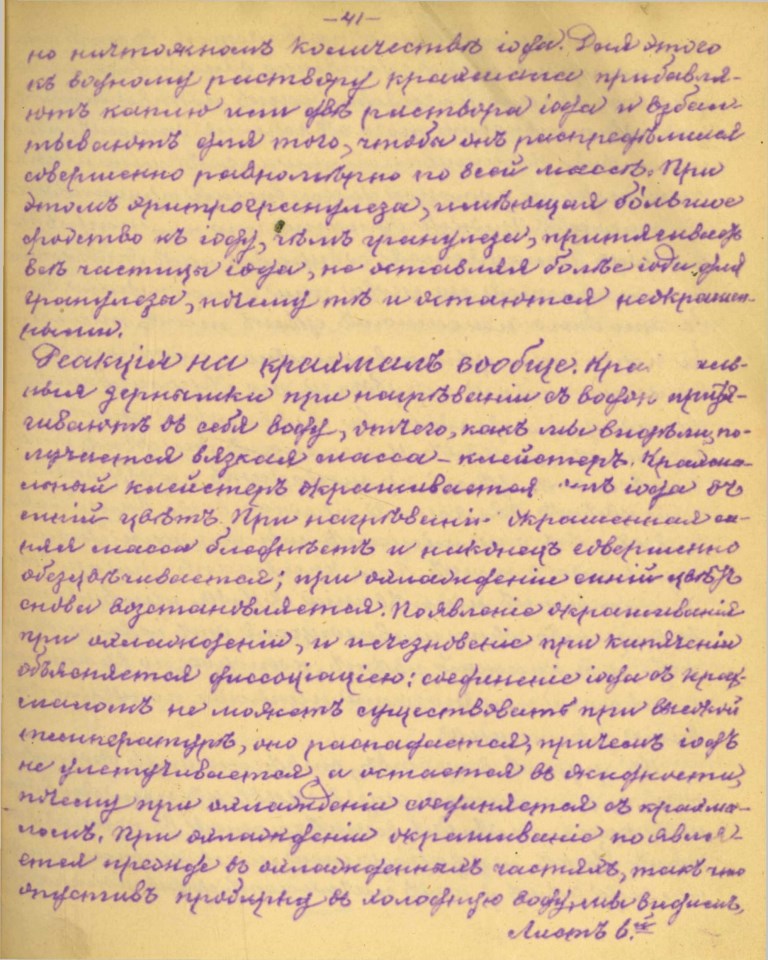 —41—
но ничтожномъ количествѣ іода. Для этого
къ водному раствору крахмала прибавля-
ютъ каплю или двѣ раствора іода и взбал-
тываютъ для того, чтобы онъ распредѣлился
совершенно равномѣрно по всей массѣ. При
этомъ эритрогранулеза, имѣющая большое
сродство къ іоду, чѣмъ гранулеза, притягиваетъ
всѣ частицы іода, не оставляя болѣе іода для
гранулезы, почему тѣ и остаются неокрашен-
ными.
Реакціи на крахмалъ вообще. Кра хмаль-
ныя зернышки при нагрѣваніи съ водой притя-
гиваютъ въ себя воду, отчего, какъ мы видѣли, по-
лучается вязкая масса – клейстеръ. Крахма-
льный клейстеръ окрашивается отъ іода въ
синій цвѣтъ. При нагрѣваніи окрашенная си-
няя масса блѣднѣетъ и наконецъ совершенно
обезцвѣчивается; при охлажденіи синій цвѣтъ
снова возстановляется. Появленіе окрашиванія
при охлажденіи, и исчезновеніе при кипяченіи
объясняется диссоціаціею: соединеніе іода съ крах-
маломъ не можетъ существовать при высокой
температурѣ, оно распадается, причемъ іодъ
не улетучивается, а остается въ жидкости,
почему при охлажденіи соединяется съ крахма-
ломъ. При охлажденіи окрашиваніе появля-
ется прежде въ охлажденныхъ частяхъ, такъ что
опустивъ пробирку въ холодную воду, мы видимъ,
Листъ 6.й